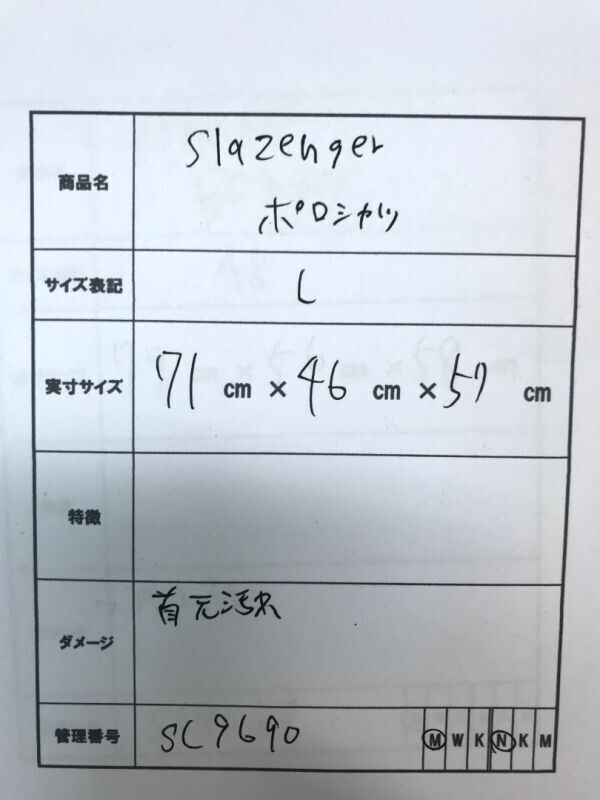 商品名 Slazenger
ポロシャツ
サイズ表記 L
実寸サイズ 71 cm × 46 cm × 57 cm
特徴
ダメージ 首元汚れ
管理番号 SC9690 M W K N K M